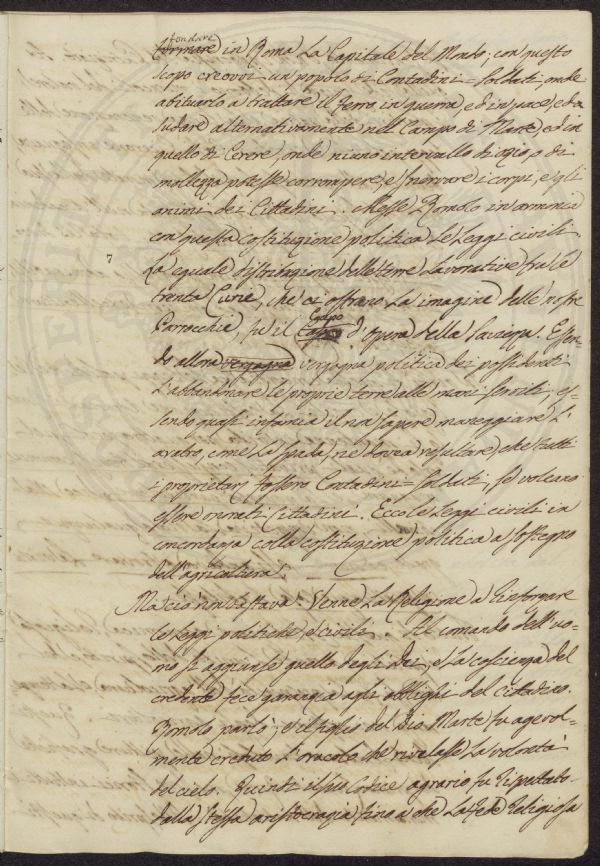 fondare
formare in Roma la Capitale del Mondo; con questo
scopo creovvi un popolo di Contadini=Soldati, onde
abituarlo a trattare il ferro in guerra, ed in pace, ed a
sudare alternativamente nell Campo di Marte, ed in
quello di Cerere, onde niuno intervallo di ozio, o di
mollezza potesse corrompere, e snervare i corpi, e gli
animi dei Cittadini. Messe Romolo in armonia
con questa costituzione politica le Leggi civili.
7
La eguale distribuzione delle terre lavorative fra le
trenta Curie, che ci offrano la imagine delle nostre
Parrocchie, fu il Colpo d'opera della saviezza. Essen-
do allora vergogna vergogna politica dei possidenti
l'abbandonare le proprie terre alle mani servili, es-
sendo quasi infamia il non sapere maneggiare l'
aratro, come la spada, ne dovea resultare, che tutti
i proprietarj fossero Contadini=Soldati, se voleano
essere onorati Cittadini. Ecco le Leggi civili in
concordanza colla costituzione politica a sostegno
dell'agricoltura.
Ma ciò non bastava. Venne la Religione a rinforzare
le Leggi politiche, e civili. Al comando dell'uo-
mo si aggiunse quello degli Dei, e la coscienza del
credente fece garanzia agli obblighi del cittadino.
Romolo parlò; e il figlio del Dio Marte fu agevol-
mente creduto l'oracolo che rivelasse la volontà
del cielo. Quindi il suo Codice agrario fu rispettato
dalla stessa aristocrazia fino a che la fede religiosa